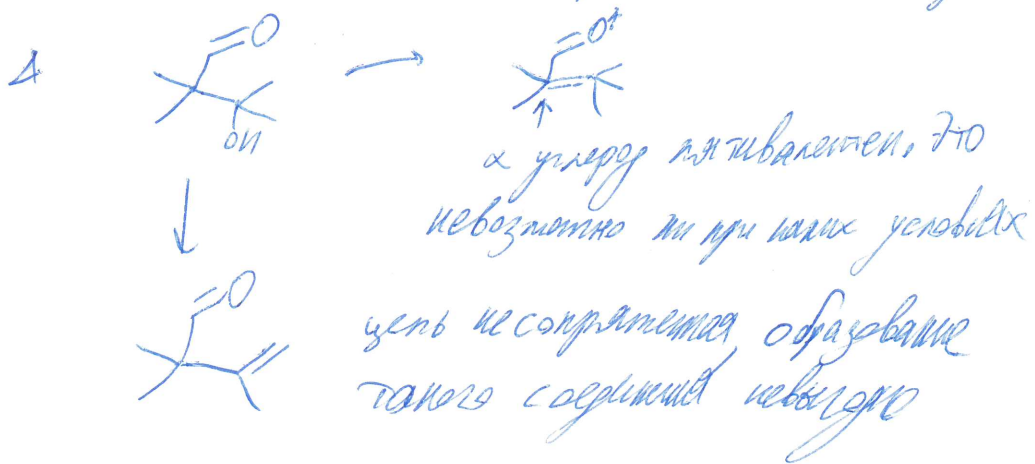 Δ
O
OH
O⁺
α углерод пятивалентен. Это
невозможно ни при каких условиях
O
цепь несопряженная, образование
такого соединения невыгодно